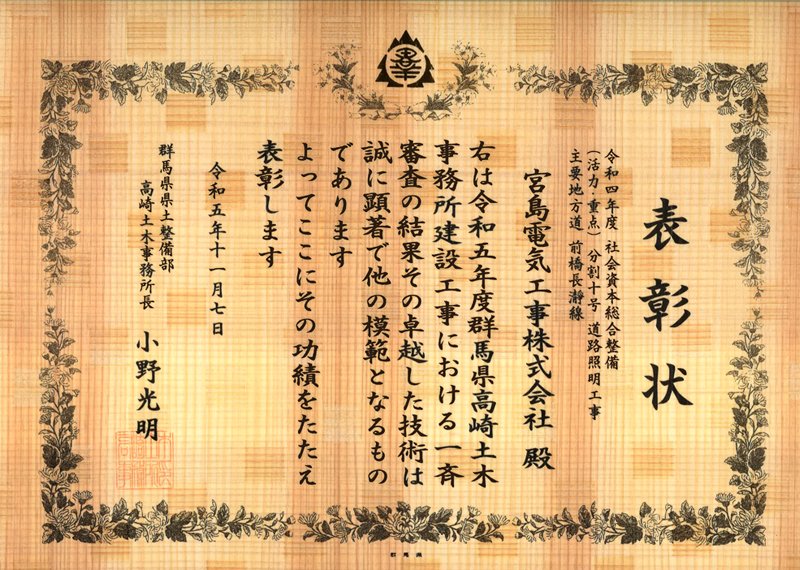 表彰状
令和四年度 社会資本総合整備
(活力・重点) 分割十号 道路照明工事
主要地方道 前橋長瀞線
宮島電気工事株式会社 殿
右は令和五年度群馬県高崎土木
事務所建設工事における一斉
審査の結果その卓越した技術は
誠に顕著で他の模範となるもの
であります
よってここにその功績をたたえ
表彰します
令和五年十一月七日
群馬県県土整備部
高崎土木事務所長 小野光明
群馬県